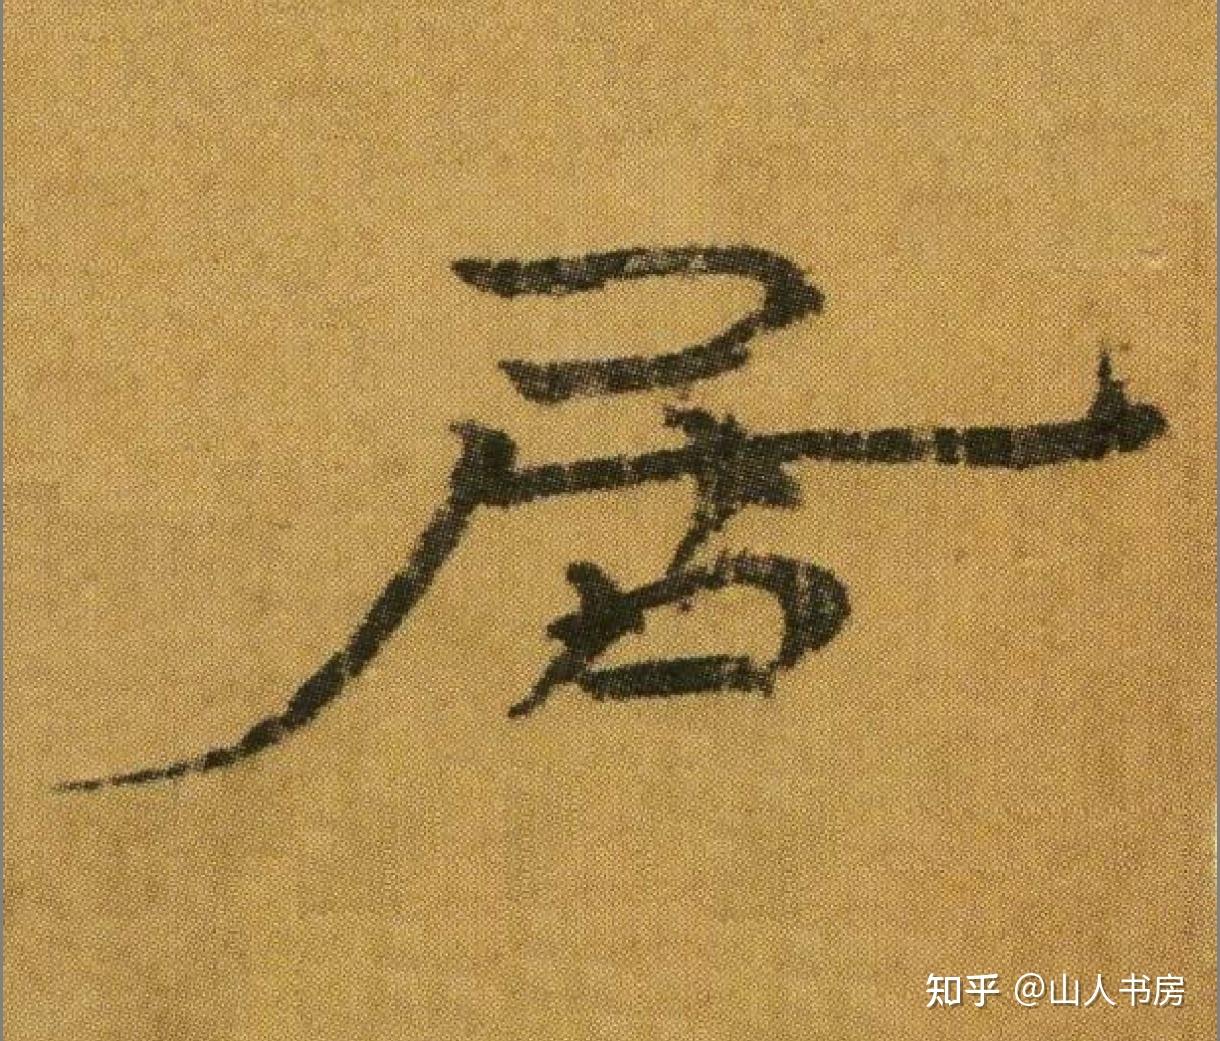 居
知乎 @山人书房